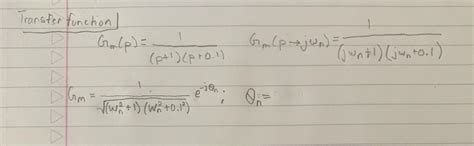 Transfer function
G_m(p) = 1 / ((p+1)(p+0.1))    G_m(p→jω_n) = 1 / ((jω_n+1)(jω_n+0.1))
G_m = 1 / √((ω_n²+1)(ω_n²+0.1²)) e^(-jθ_n);    θ_n =